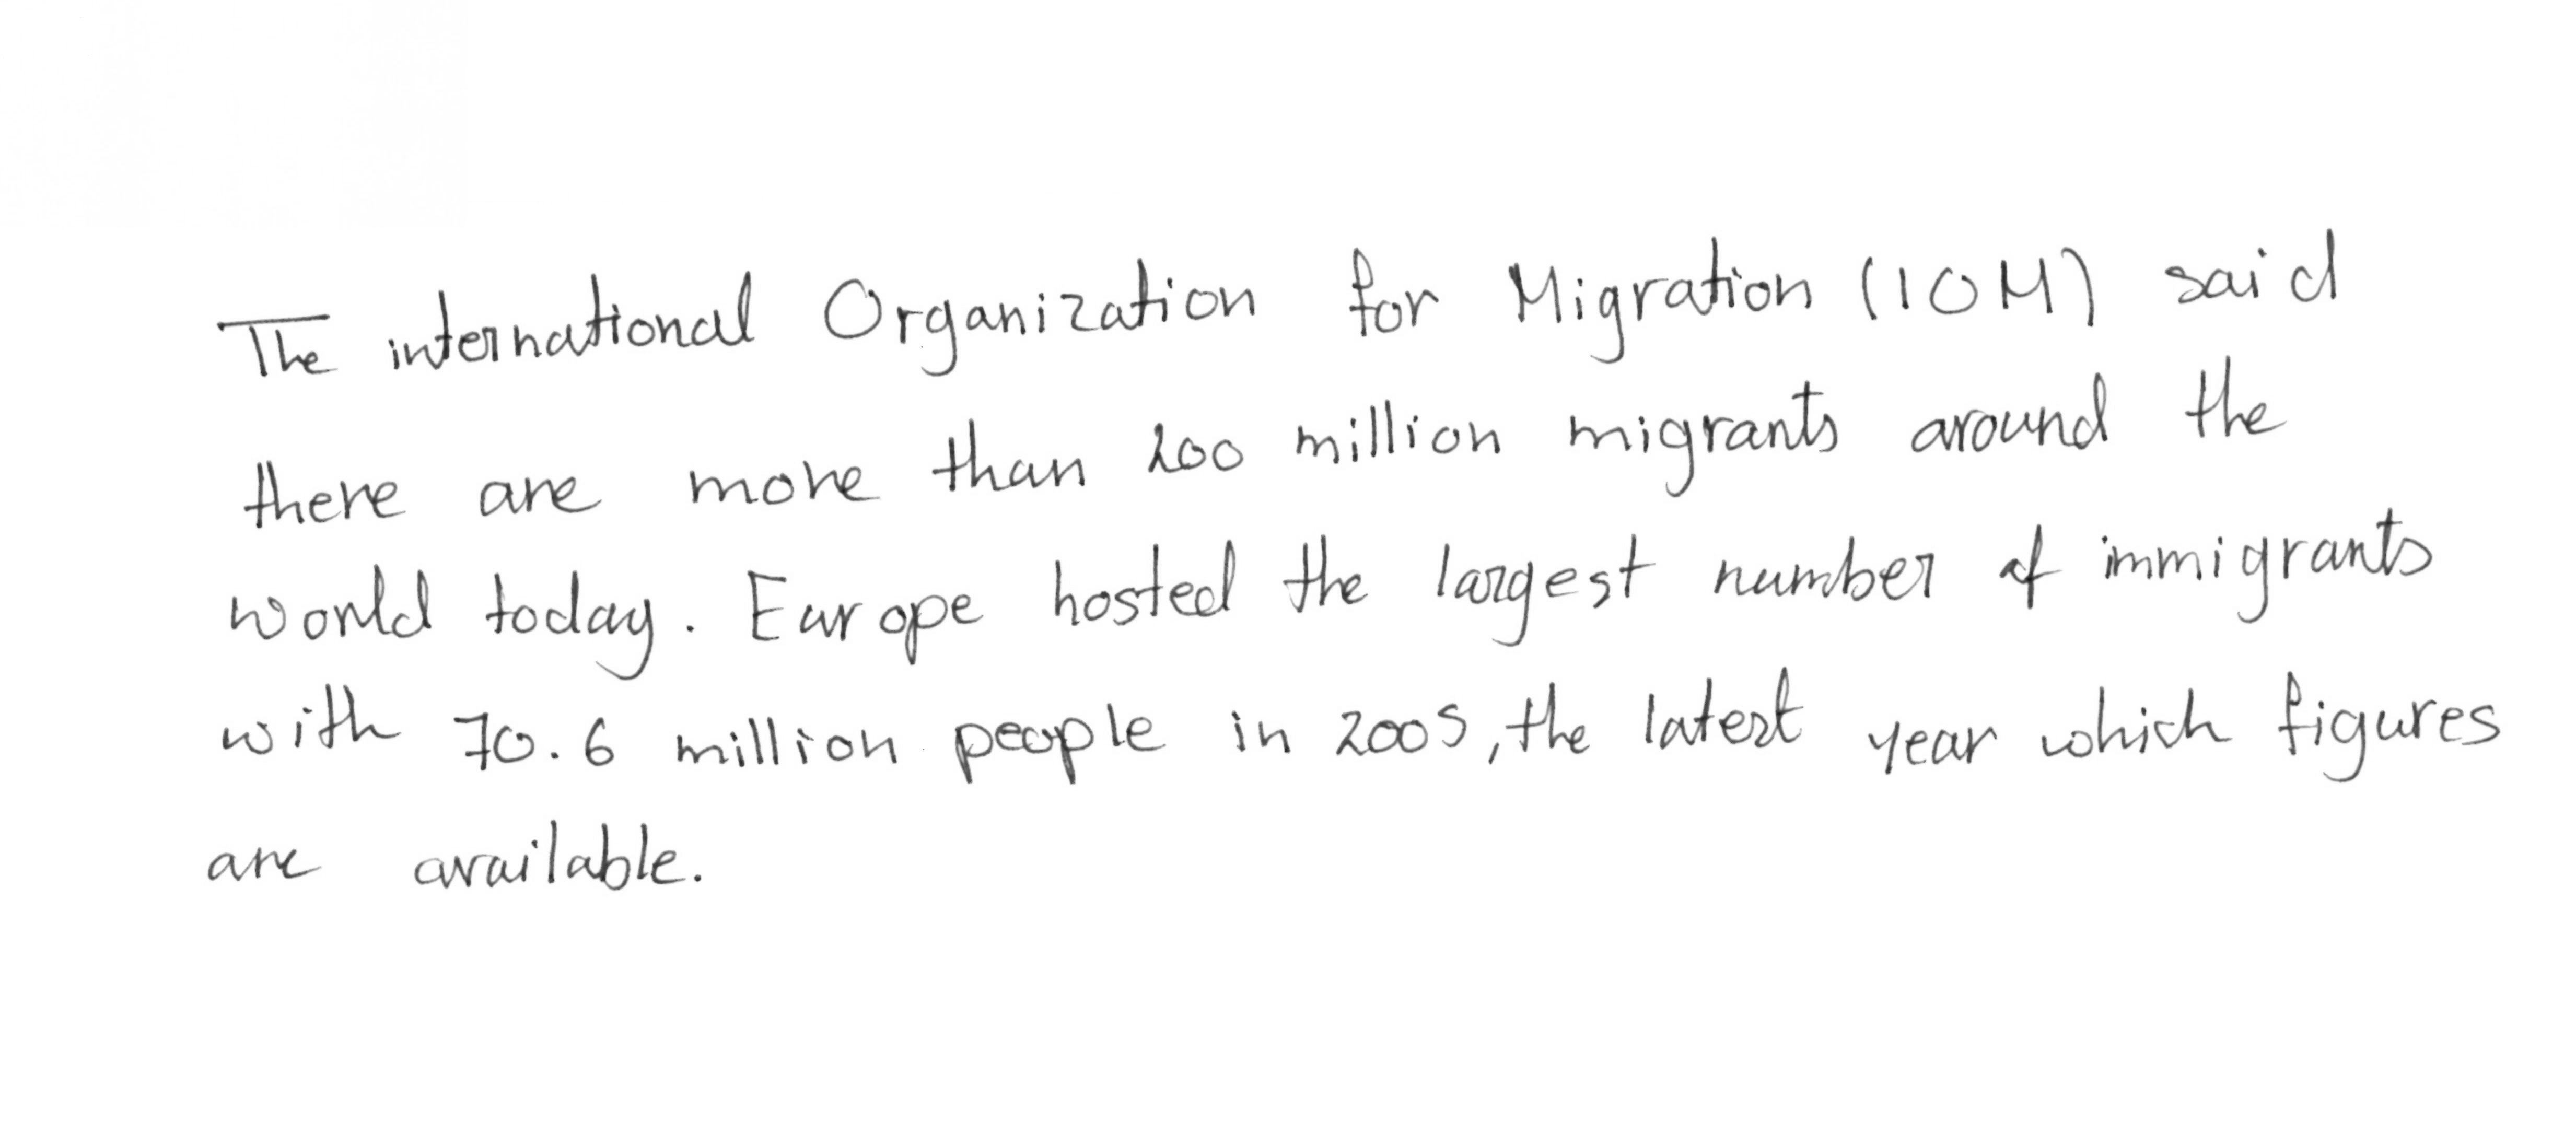 The international Organization for Migration (IOM) said
there are more than 200 million migrants around the
world today. Europe hosted the largest number of immigrants
with 70.6 million people in 2005, the latest year which figures
are available.